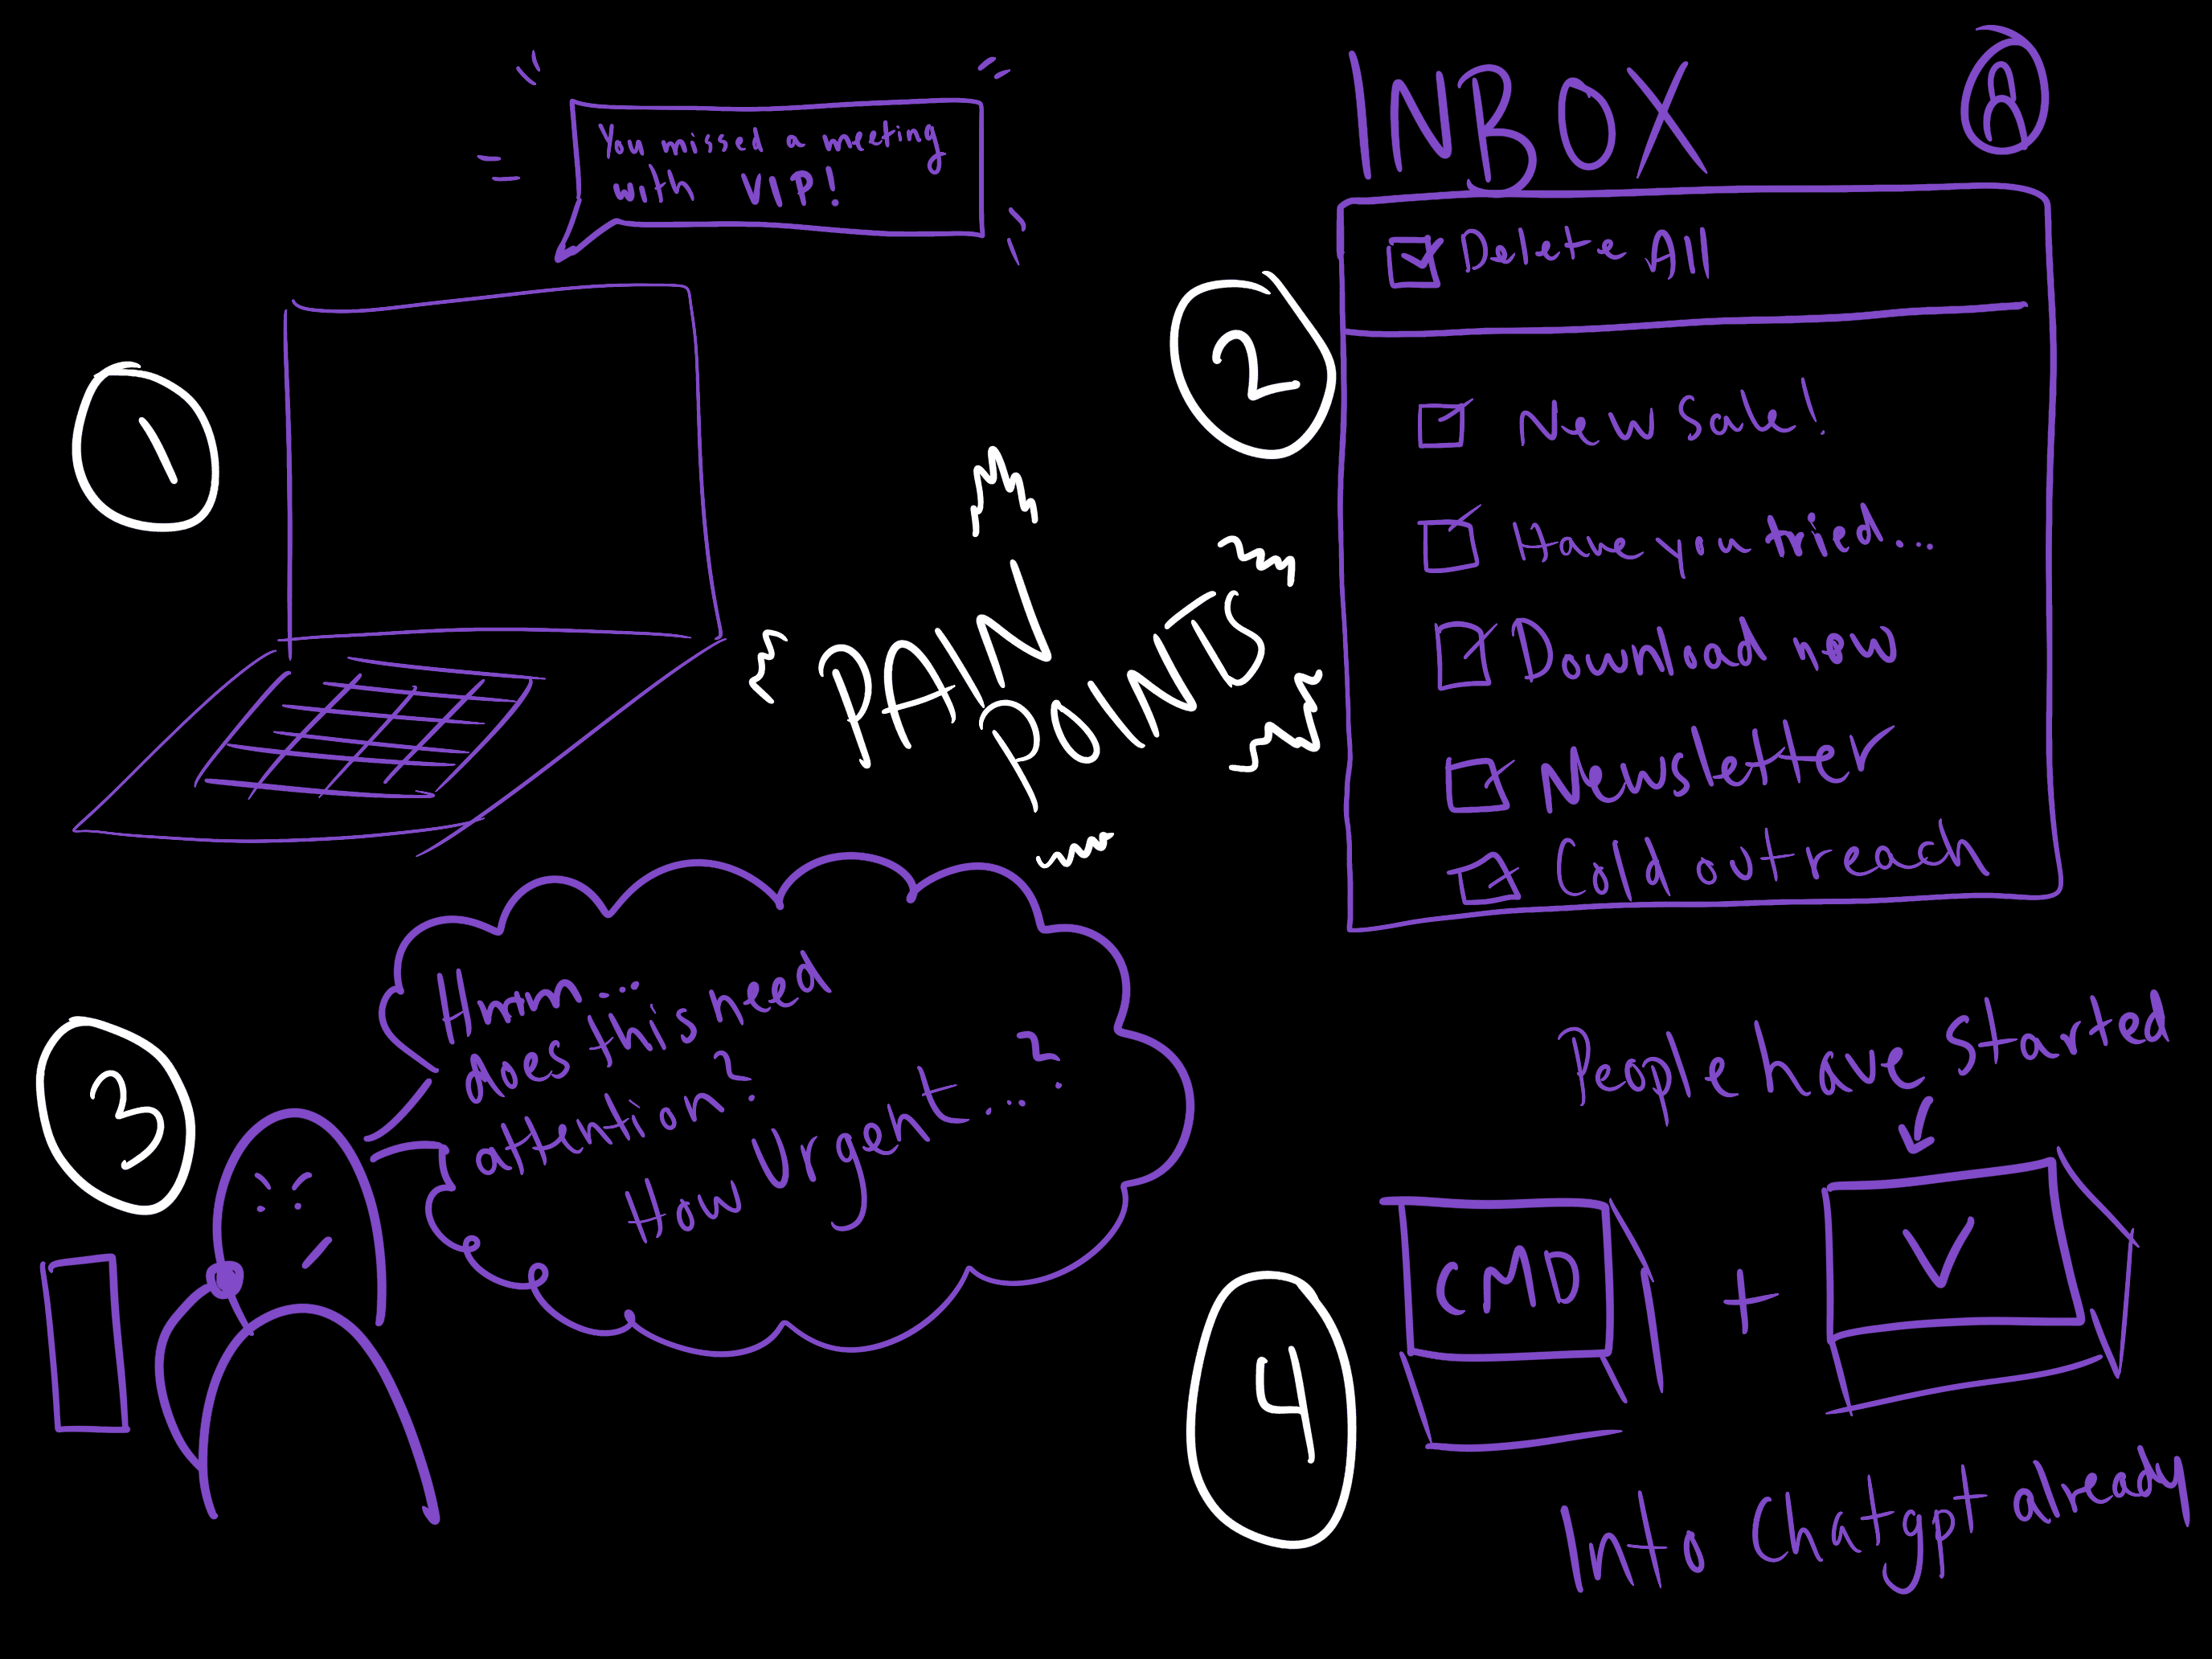 You missed a meeting
with VIP!
1
PAIN
POINTS
INBOX
2
Delete All
New Sale!
Have you tried...
Download now
Newsletter
Cold outreach
3
Hmmm...
does this need
attention?
How Urgent...?
People have started
4
CMD
+
V
Into Chatgpt already